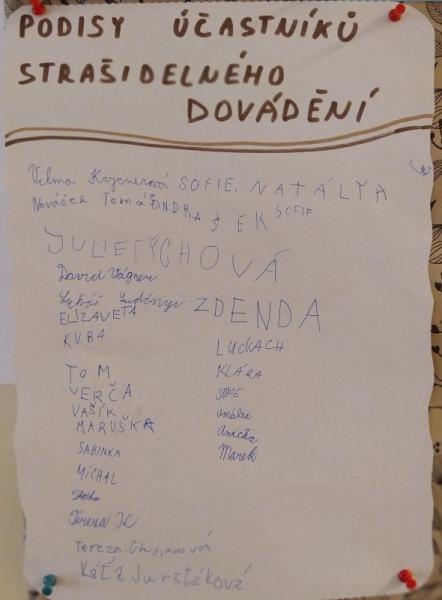 PODISY ÚČASTNÍKŮ
STRAŠIDELNÉHO
DOVÁDĚNÍ
Velma SOFIE. NATÁLYA
Nováček Tomáš ONDRAŠEK SOFIE
JULIE TÝCHOVÁ
David Vágner
Lukáš ZDENDA
ELIZAVETA
KUBA
LUCKACH
TOM
KLÁRA
VERČA
VAŠÍK
MARUŠKA
Anička
SABINKA
Marek
MICHAL
Tereza
Tereza
KáťA Jurštáková